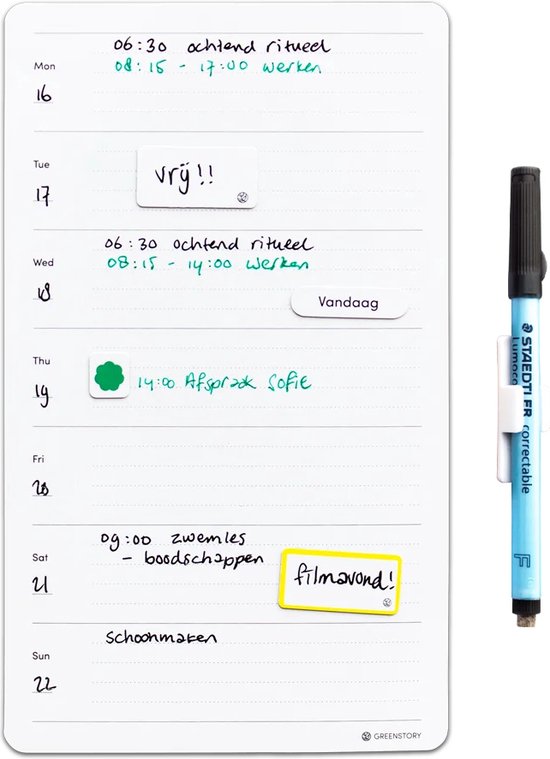 06:30 ochtend ritueel
Mon
08:15 - 17:00 werken
16
Tue
17
vrij!!
06:30 ochtend ritueel
Wed
08:15 - 14:00 werken
18
Vandaag
Thu
19
14:00 Afspraak Sofie
Fri
20
09:00 zwemles
Sat
- boodschappen
21
filmavond!
schoonmaken
Sun
22
GREENSTORY
STAEDTLER
Lumoco
correctable
F